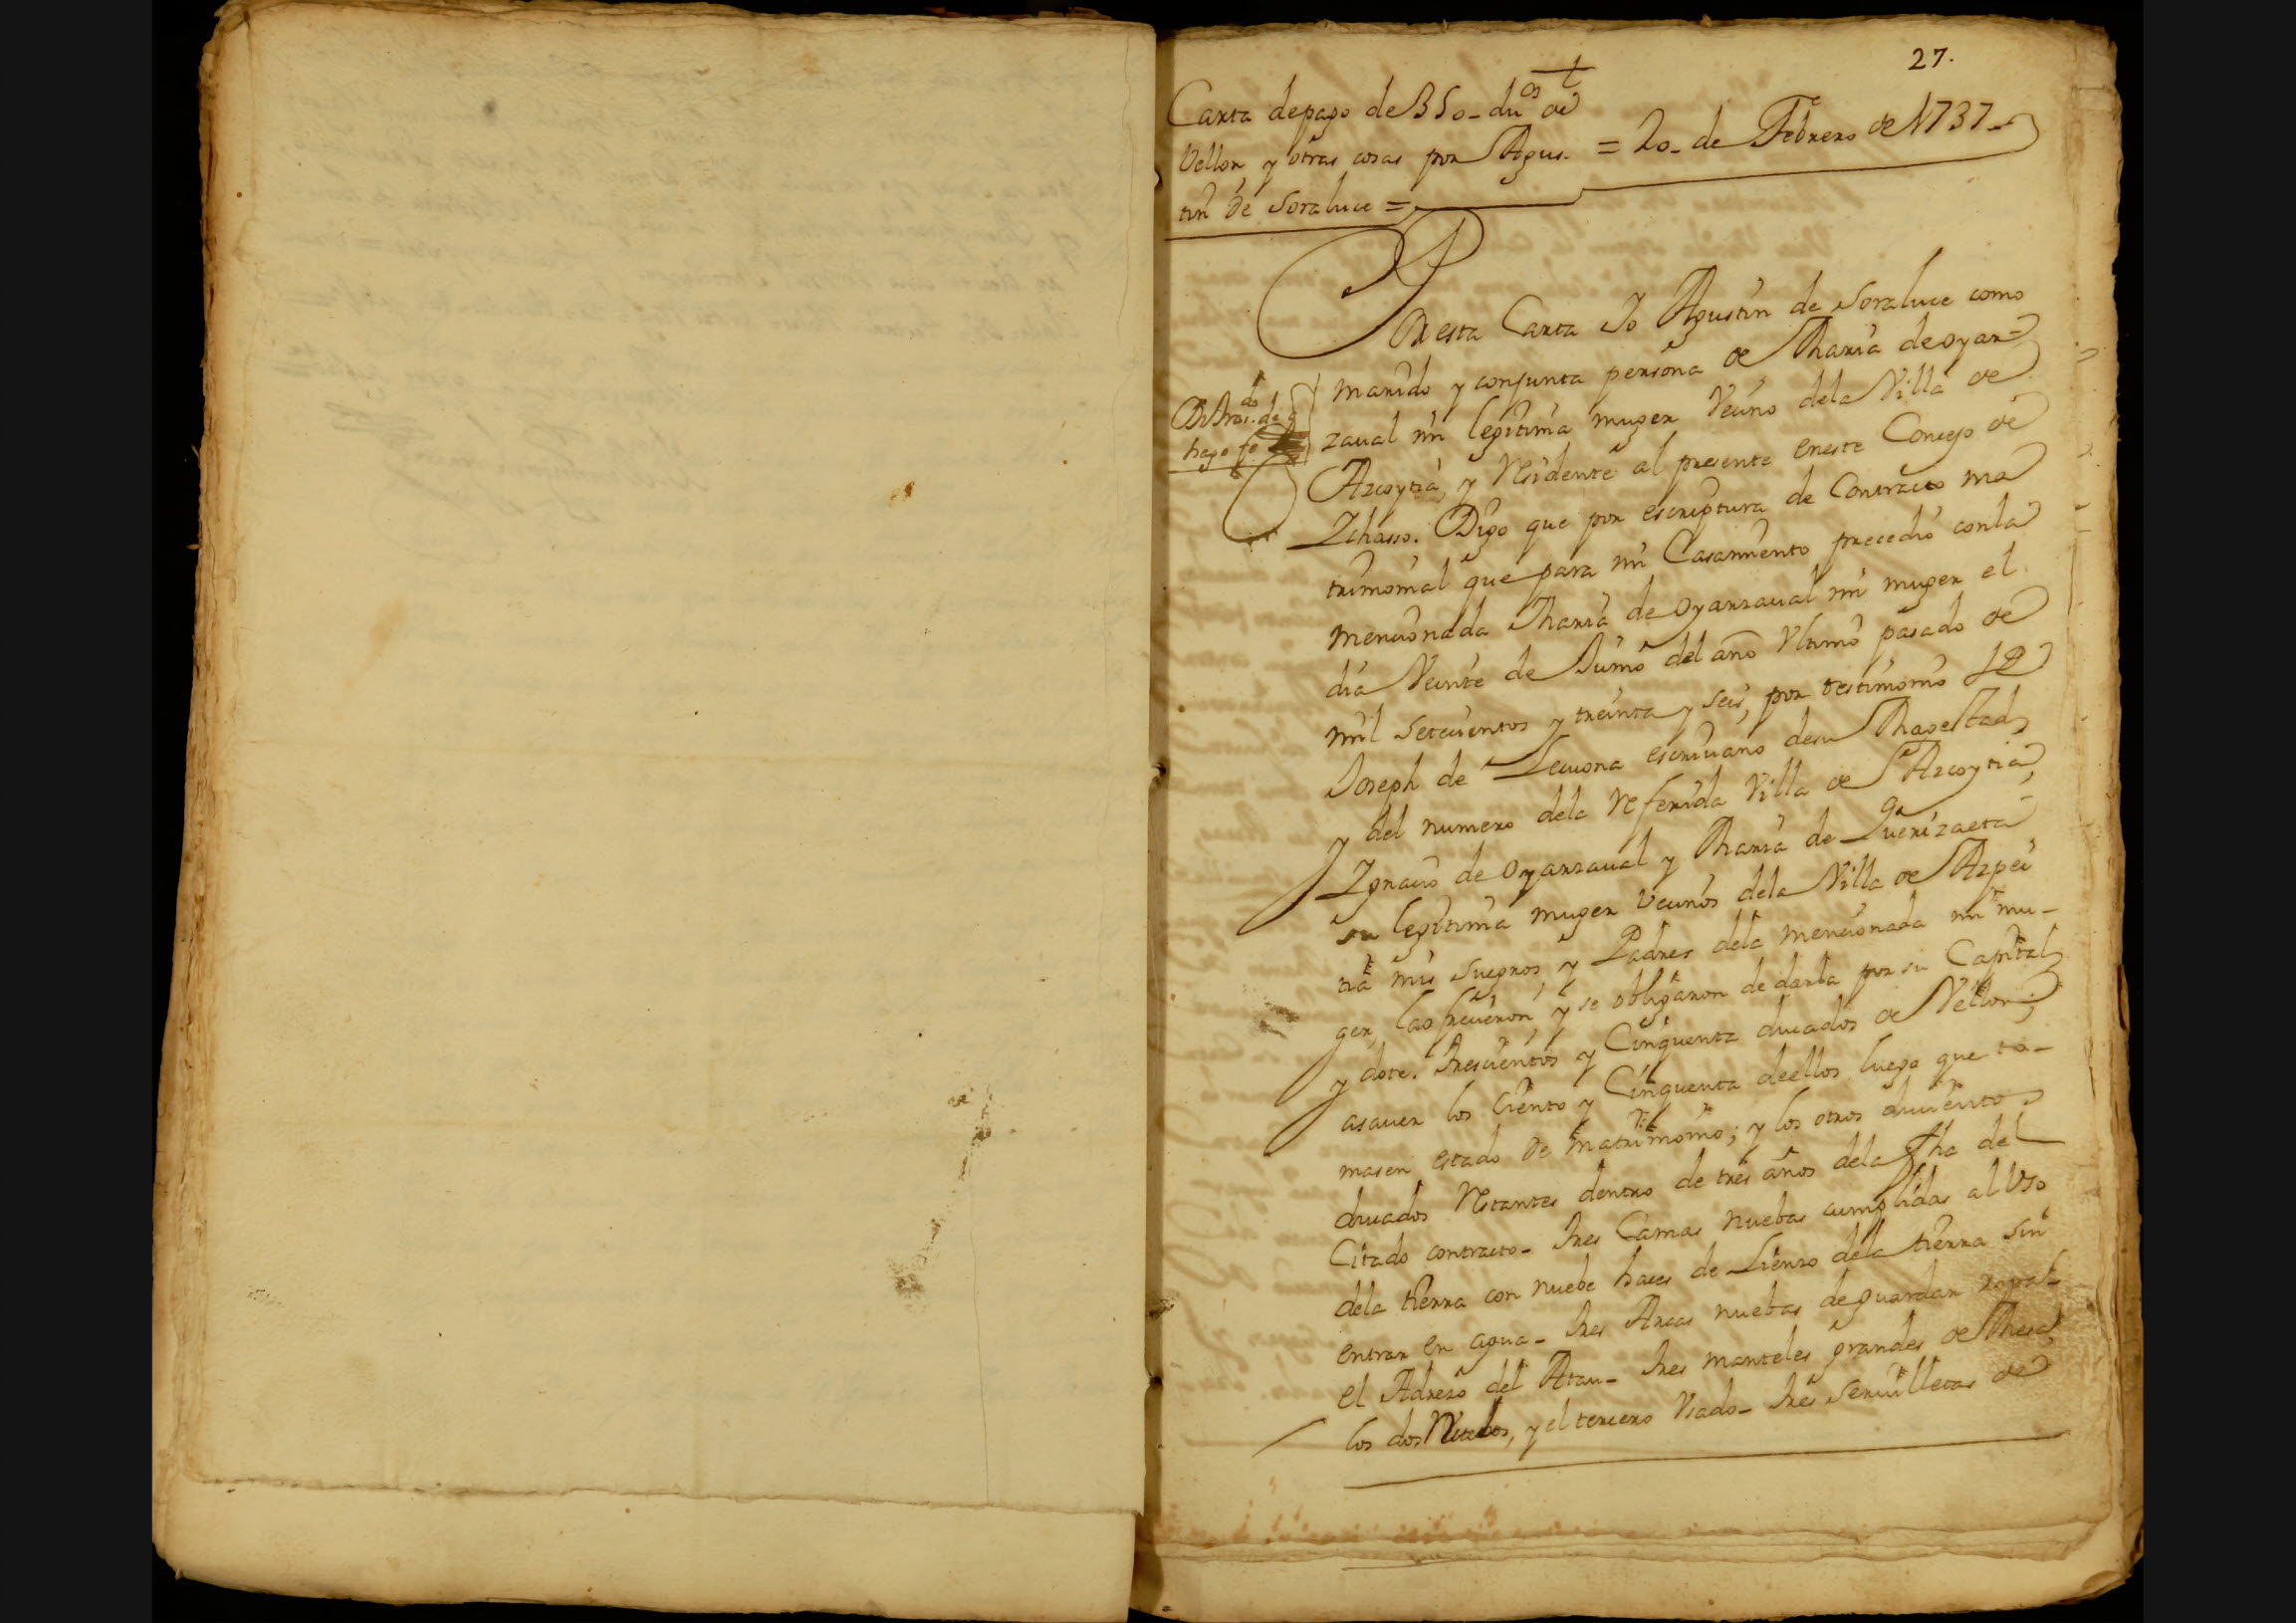 27.
Carta depago de 350_ du.os de
Vellon, y otras cosas por Agus.
= 20_ de Febrero de 1737_
tin de Soraluce =
Por esta Carta Yo Agustin de Soraluce como
marido y conjunta persona de Maria de oyar=
zaual mi legitima muger Vecino dela Villa de
hago fe
Azcoytia, y Residente al presente eneste Concejo de
Ichasso. Digo que por escriptura de Contracto ma
trimonial que para mi Casamiento precedio conla
mencionada Maria de Oyarzaual mi muger el
dia Veinte de Junio del año Vltimo pasado de
mil setecientos y treinta y seis, por testimonio de
Joseph de Lecuona escriuano desu Magestad,
y del numero dela Referida Villa de Azcoytia,
Ignacio de Oyarzaual y Maria de Querizaeta
su legitima muger Vecinos dela Villa de Azpei
tia mis suegros, y Padres dela mencionada mi mu_
ger, la ofrecieron, y se obligaron de darla por su Capital
y dote. Trescientos y Cinquenta ducados de Vellon;
asauer los Ciento y Cinquenta deellos luego que to_
masen estado de matrimonio; y los otros ducientos
ducados Restantes dentro de tres años dela fha del
Citado contracto_ tres Camas nuebas cumplidas al Vso
dela tierra con nuebe haces de Lienzo dela tierra sin
entrar en agua_ tres Arcas nuebas de guardar ropa_
el Adrezo del Atau_ tres manteles grandes de Mesa,
los dos Nuebos, y el tercero Vsado_ tres Seruilletas de